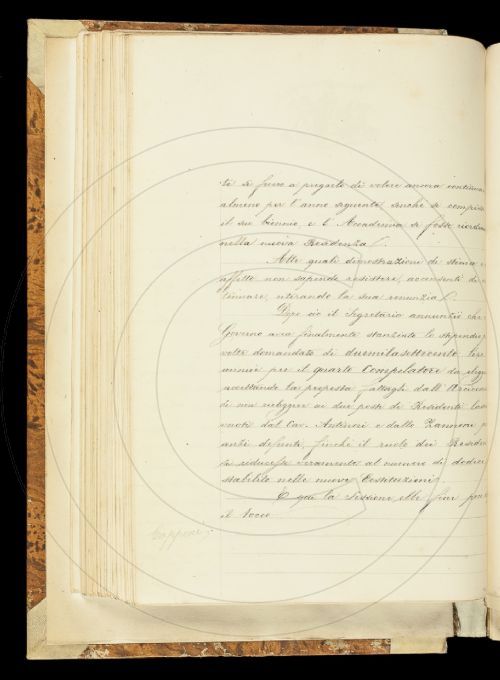 ti si fecero a pregarlo di volere ancora continua
almeno per l'anno seguente, anche se compie
il suo biennio, e l'Accademia si fosse riordina
nella nuova Residenza.
Alle quali dimostrazione di stima e
affetto non sapendo resistere, accosentì di
tinuare, ritirando la sua renunzia.
Dopo ciò il Segretario annunziò che
Governo avea finalmente stanziato lo stipendio
volte domandato di duemilasettecento lire
annue per il quarto Compilatore da elegg
accettando la proposta fattagli dall'Arcicon
di non rieleggere ai due posti di Residenti lasc
vuoti dal Cav. Antinori e dallo Zannoni
ambi defunti, finchè il ruolo dei Residen
si riducesse veramente al numero di dodici
stabilito nelle nuove Costituzioni.
E qui la Sessione ebbe fine
il tocco
Capponi